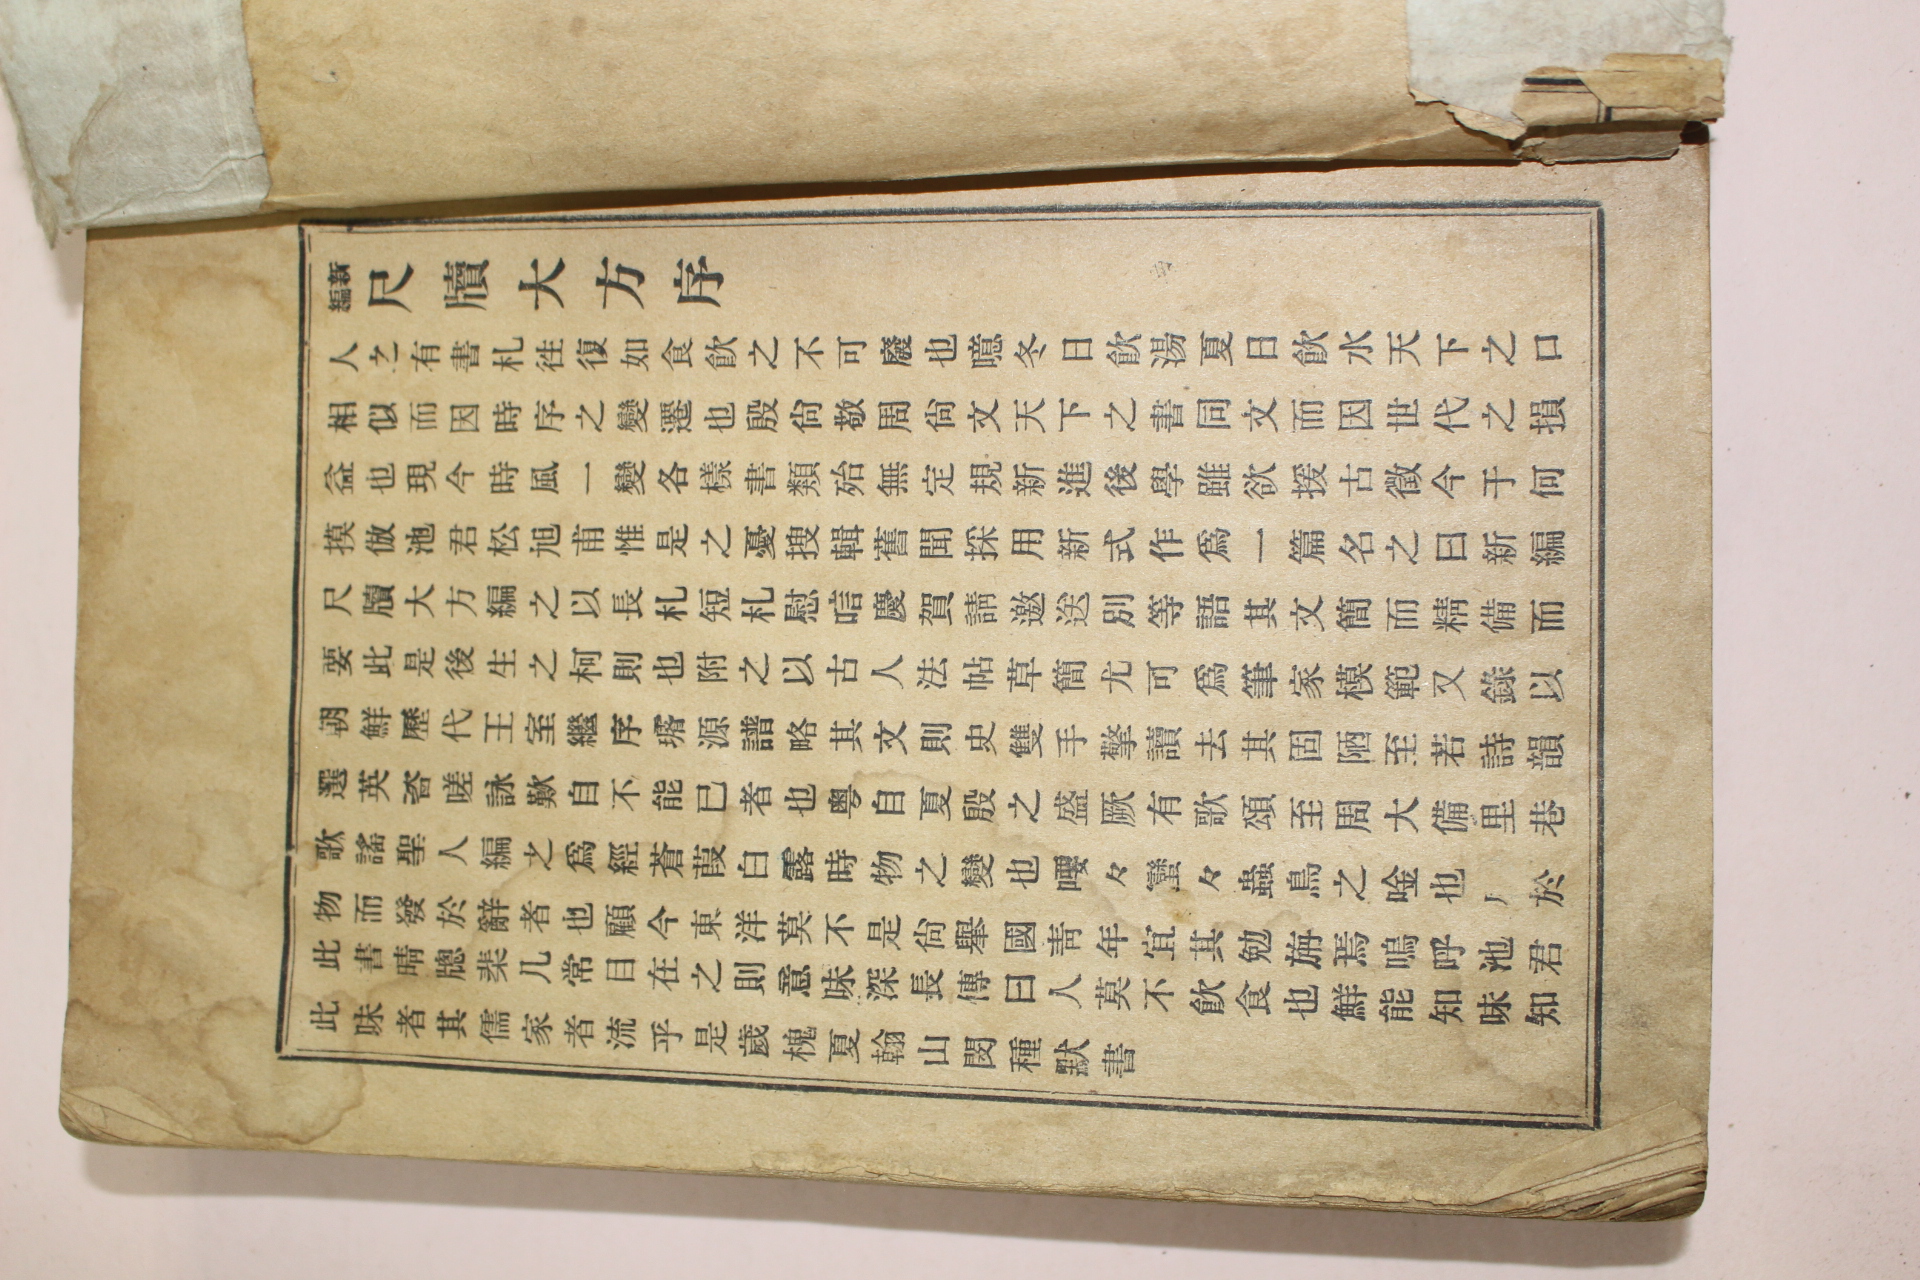 新編尺牘大方序
人之有書札徃復如食飮之不可廢也噫冬日飮湯夏日飮水天下之口
相似而因時序之變遷也殷尙敬周尙文天下之書同文而因世代之損
益也現今時風一變各樣書類殆無定規新進後學雖欲援古徵今于何
摸倣池君松旭甫惟是之憂搜輯舊聞採用新式作爲一篇名之曰新編
尺牘大方編之以長札短札慰唁慶賀請邀送別等語其文簡而精備而
要此是後生之柯則也附之以古人法帖草簡尤可爲筆家模範又錄以
朝鮮歷代王室繼序璿源譜略其文則史雙手擎讀去其固陋至若詩韻
選英咨嗟詠歎自不能已者也粤自夏殷之盛厥有歌頌至周大備里巷
歌謠聖人編之爲經蒼葭白露時物之變也嚶々蠻々蟲鳥之唫也於
物而發於辭者也顧今東洋莫不是尙擧國靑年宜其勉旃焉嗚呼池君
此書晴牕棐几常目在之則意味深長傳曰人莫不飮食也鮮能知味知
此味者其儒家者流乎是歲槐夏翰山閔種默書